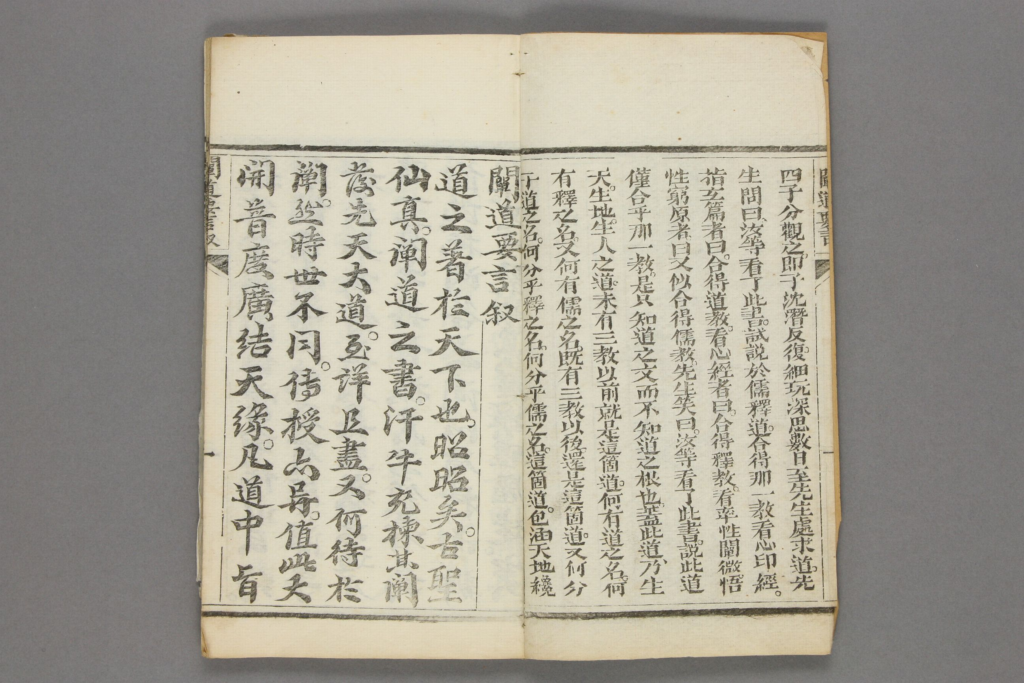 四子分觀之卽子沈潛反復細玩深思數日至先生處求道先
生問曰汝等看了此書試說於儒釋道合得那一教看心印經
指玄篇者曰合得道教看心經者曰合得釋教看率性闡微悟
性窮原者曰又似合得儒教先生笑曰汝等看了此書說此道
僅合乎那一教是只知道之文而不知道之根也蓋此道乃生
天生地生人之道未有三教以前就是這箇道何有道之名何
有釋之名又何有儒之名旣有三教以後還是這箇道又何分
于道之名何分乎釋之名何分乎儒之名這箇道包涵天地纔
闡道要言叙
道之著於天下也昭昭矣古聖
仙真闡道之書汗牛充棟其闡
發先天大道至詳且盡又何待於
闡然時世不同傳授亦異值此大
開普度廣結天緣凡道中旨
闡道要言叙
一